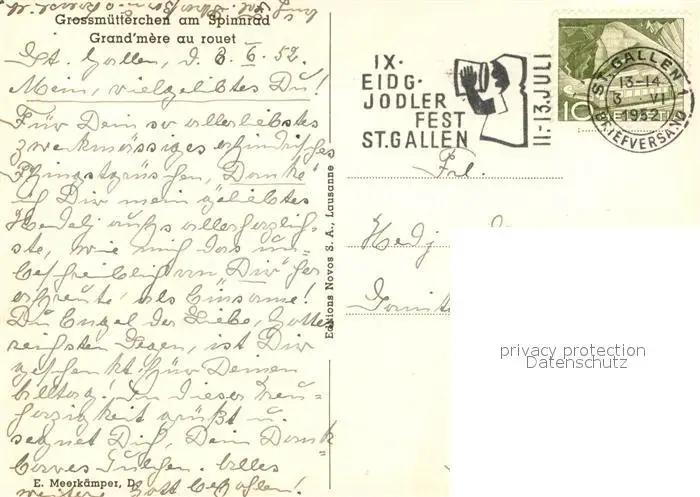 Grossmütterchen am Spinnrad
Grand'mère au rouet
St. Gallen, d. 3. 6. 52.
Mein, vielgeliebtes Du!
Für Dein so allerliebstes
zweckmässiges erfindrisches
Pfingstgrüsschen, Danke
ich Dir mein geliebtes
Hedelj aufs allerherzlich-
ste, wie mich das un-
beschreiblich von "Dir" her
erfreute, als Einsame!
Du Engel der Liebe, Gottes
reichsten Segen, ist Dir
geschenkt für Deinen
Alltag! In dieser Treu-
herzigkeit grüsst u.
segnet Dich, Dein Dank-
bares Alles
weitere Gott befohlen!
E. Meerkämper, D
Editions Novos S. A., Lausanne
IX.
EIDG.
JODLER
FEST
ST. GALLEN
11.-13. JULI
ST. GALLEN 1
13-14
3. VI
1952
BRIEFVERSAND
10
HELVETIA
Frl.
Hedj
privacy protection
Datenschutz